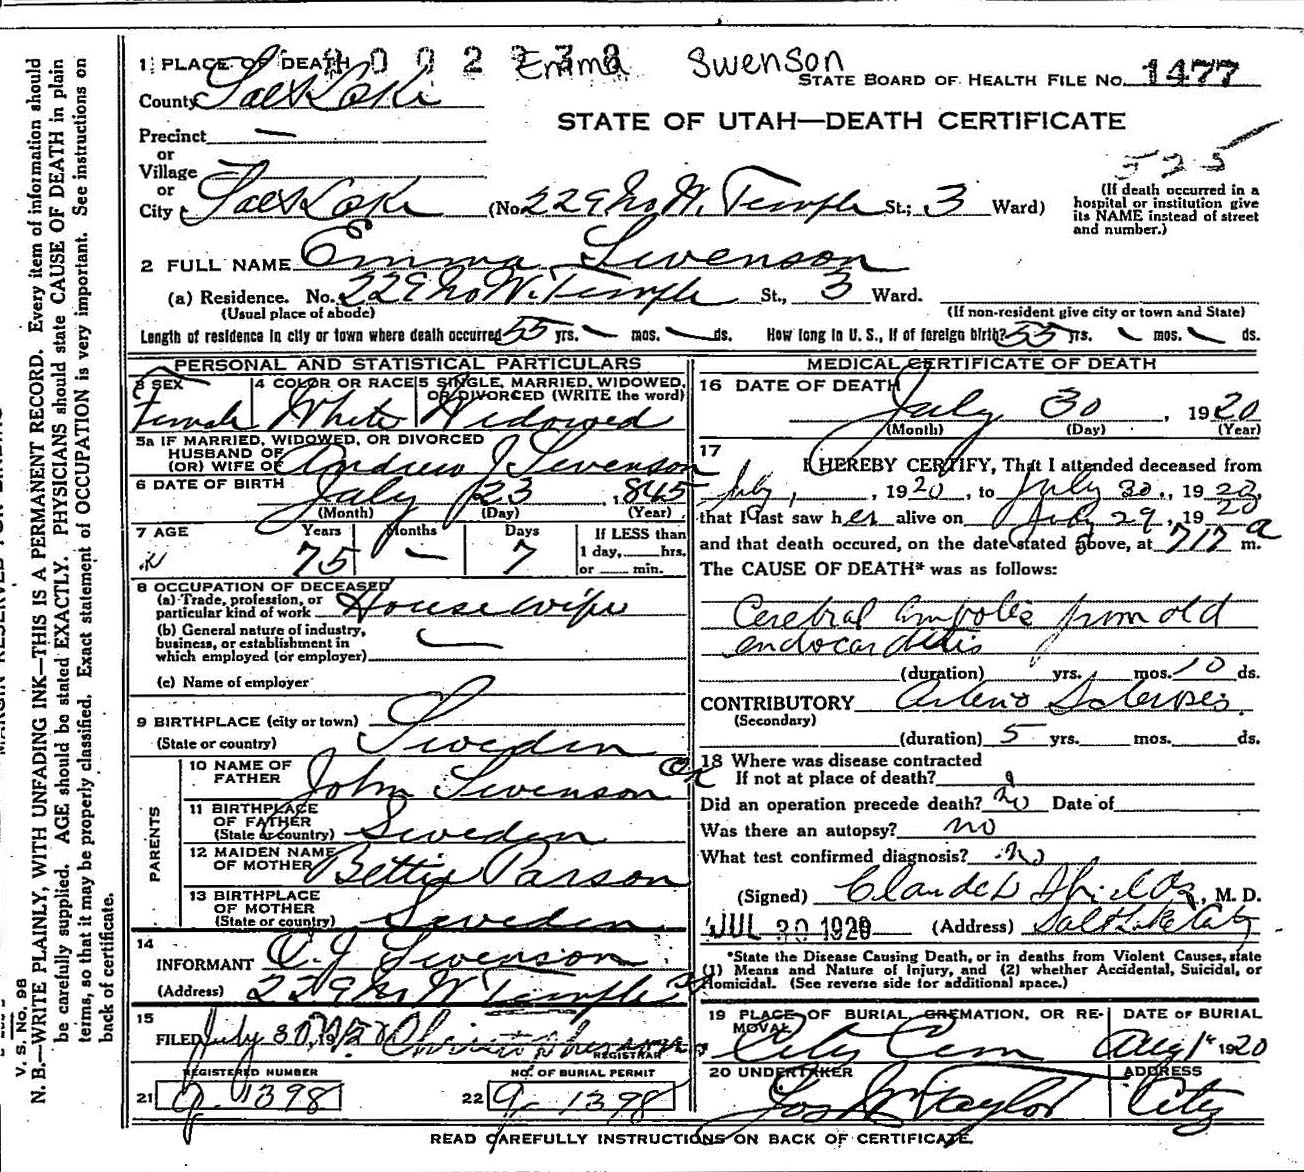 1 PLACE OF DEATH 0 0 2 2 3 8 Emma Swenson
STATE BOARD OF HEALTH FILE NO. 1477
County Salt Lake
STATE OF UTAH—DEATH CERTIFICATE
Precinct —
or
Village
525
or
City Salt Lake (No. 229 No W. Temple St.; 3 Ward)
(If death occurred in a hospital or institution give its NAME instead of street and number.)
2 FULL NAME Emma Swenson
(a) Residence. No. 229 No W. Temple St., 3 Ward.
(Usual place of abode) (If non-resident give city or town and State)
Length of residence in city or town where death occurred 55 yrs. — mos. — ds. How long in U. S., if of foreign birth? 55 yrs. — mos. — ds.
PERSONAL AND STATISTICAL PARTICULARS
3 SEX
Female
4 COLOR OR RACE
White
5 SINGLE, MARRIED, WIDOWED, OR DIVORCED (WRITE the word)
Widowed
5a IF MARRIED, WIDOWED, OR DIVORCED
HUSBAND OF
(OR) WIFE OF Andrew J Swenson
6 DATE OF BIRTH July 23, 1845
(Month) (Day) (Year)
7 AGE Years Months Days If LESS than
75 — 7 1 day, hrs.
or min.
8 OCCUPATION OF DECEASED
(a) Trade, profession, or
particular kind of work House wife
(b) General nature of industry,
business, or establishment in
which employed (or employer) —
(c) Name of employer
9 BIRTHPLACE (city or town)
(State or country) Sweden
PARENTS
10 NAME OF
FATHER John Swenson
11 BIRTHPLACE
OF FATHER
(State or country) Sweden
12 MAIDEN NAME
OF MOTHER Bettie Parson
13 BIRTHPLACE
OF MOTHER
(State or country) Sweden
14
INFORMANT O. J. Swenson
(Address) 229 No W Temple
15
FILED July 30, 192
REGISTRAR
REGISTERED NUMBER NO. OF BURIAL PERMIT
21 g. 1398 22 g. 1398
MEDICAL CERTIFICATE OF DEATH
16 DATE OF DEATH
July 30, 1920
(Month) (Day) (Year)
17
I HEREBY CERTIFY, That I attended deceased from
July, , 1920, to July 30., 1920,
that I last saw her alive on July 29, 1920
and that death occured, on the date stated above, at 717 a m.
The CAUSE OF DEATH* was as follows:
Cerebral from old
endocarditis
(duration) yrs. mos. 10 ds.
CONTRIBUTORY Arterio Sclerosis.
(Secondary)
(duration) 5 yrs. mos. ds.
18 Where was disease contracted
If not at place of death? ?
Did an operation precede death? no Date of
Was there an autopsy? no
What test confirmed diagnosis? no
(Signed) Claude L Shields, M. D.
JUL 30 1920 (Address) Salt Lake City
*State the Disease Causing Death, or in deaths from Violent Causes, state
(1) Means and Nature of Injury, and (2) whether Accidental, Suicidal, or
Homicidal. (See reverse side for additional space.)
19 PLACE OF BURIAL, CREMATION, OR RE-
MOVAL
City Cem
DATE OF BURIAL
Aug 1st 1920
20 UNDERTAKER
Jos Wm Taylor
ADDRESS
City
READ CAREFULLY INSTRUCTIONS ON BACK OF CERTIFICATE.
V. S. No. 98
N. B.—WRITE PLAINLY, WITH UNFADING INK—THIS IS A PERMANENT RECORD. Every item of information should
be carefully supplied. AGE should be stated EXACTLY. PHYSICIANS should state CAUSE OF DEATH in plain
terms, so that it may be properly classified. Exact statement of OCCUPATION is very important. See instructions on
back of certificate.